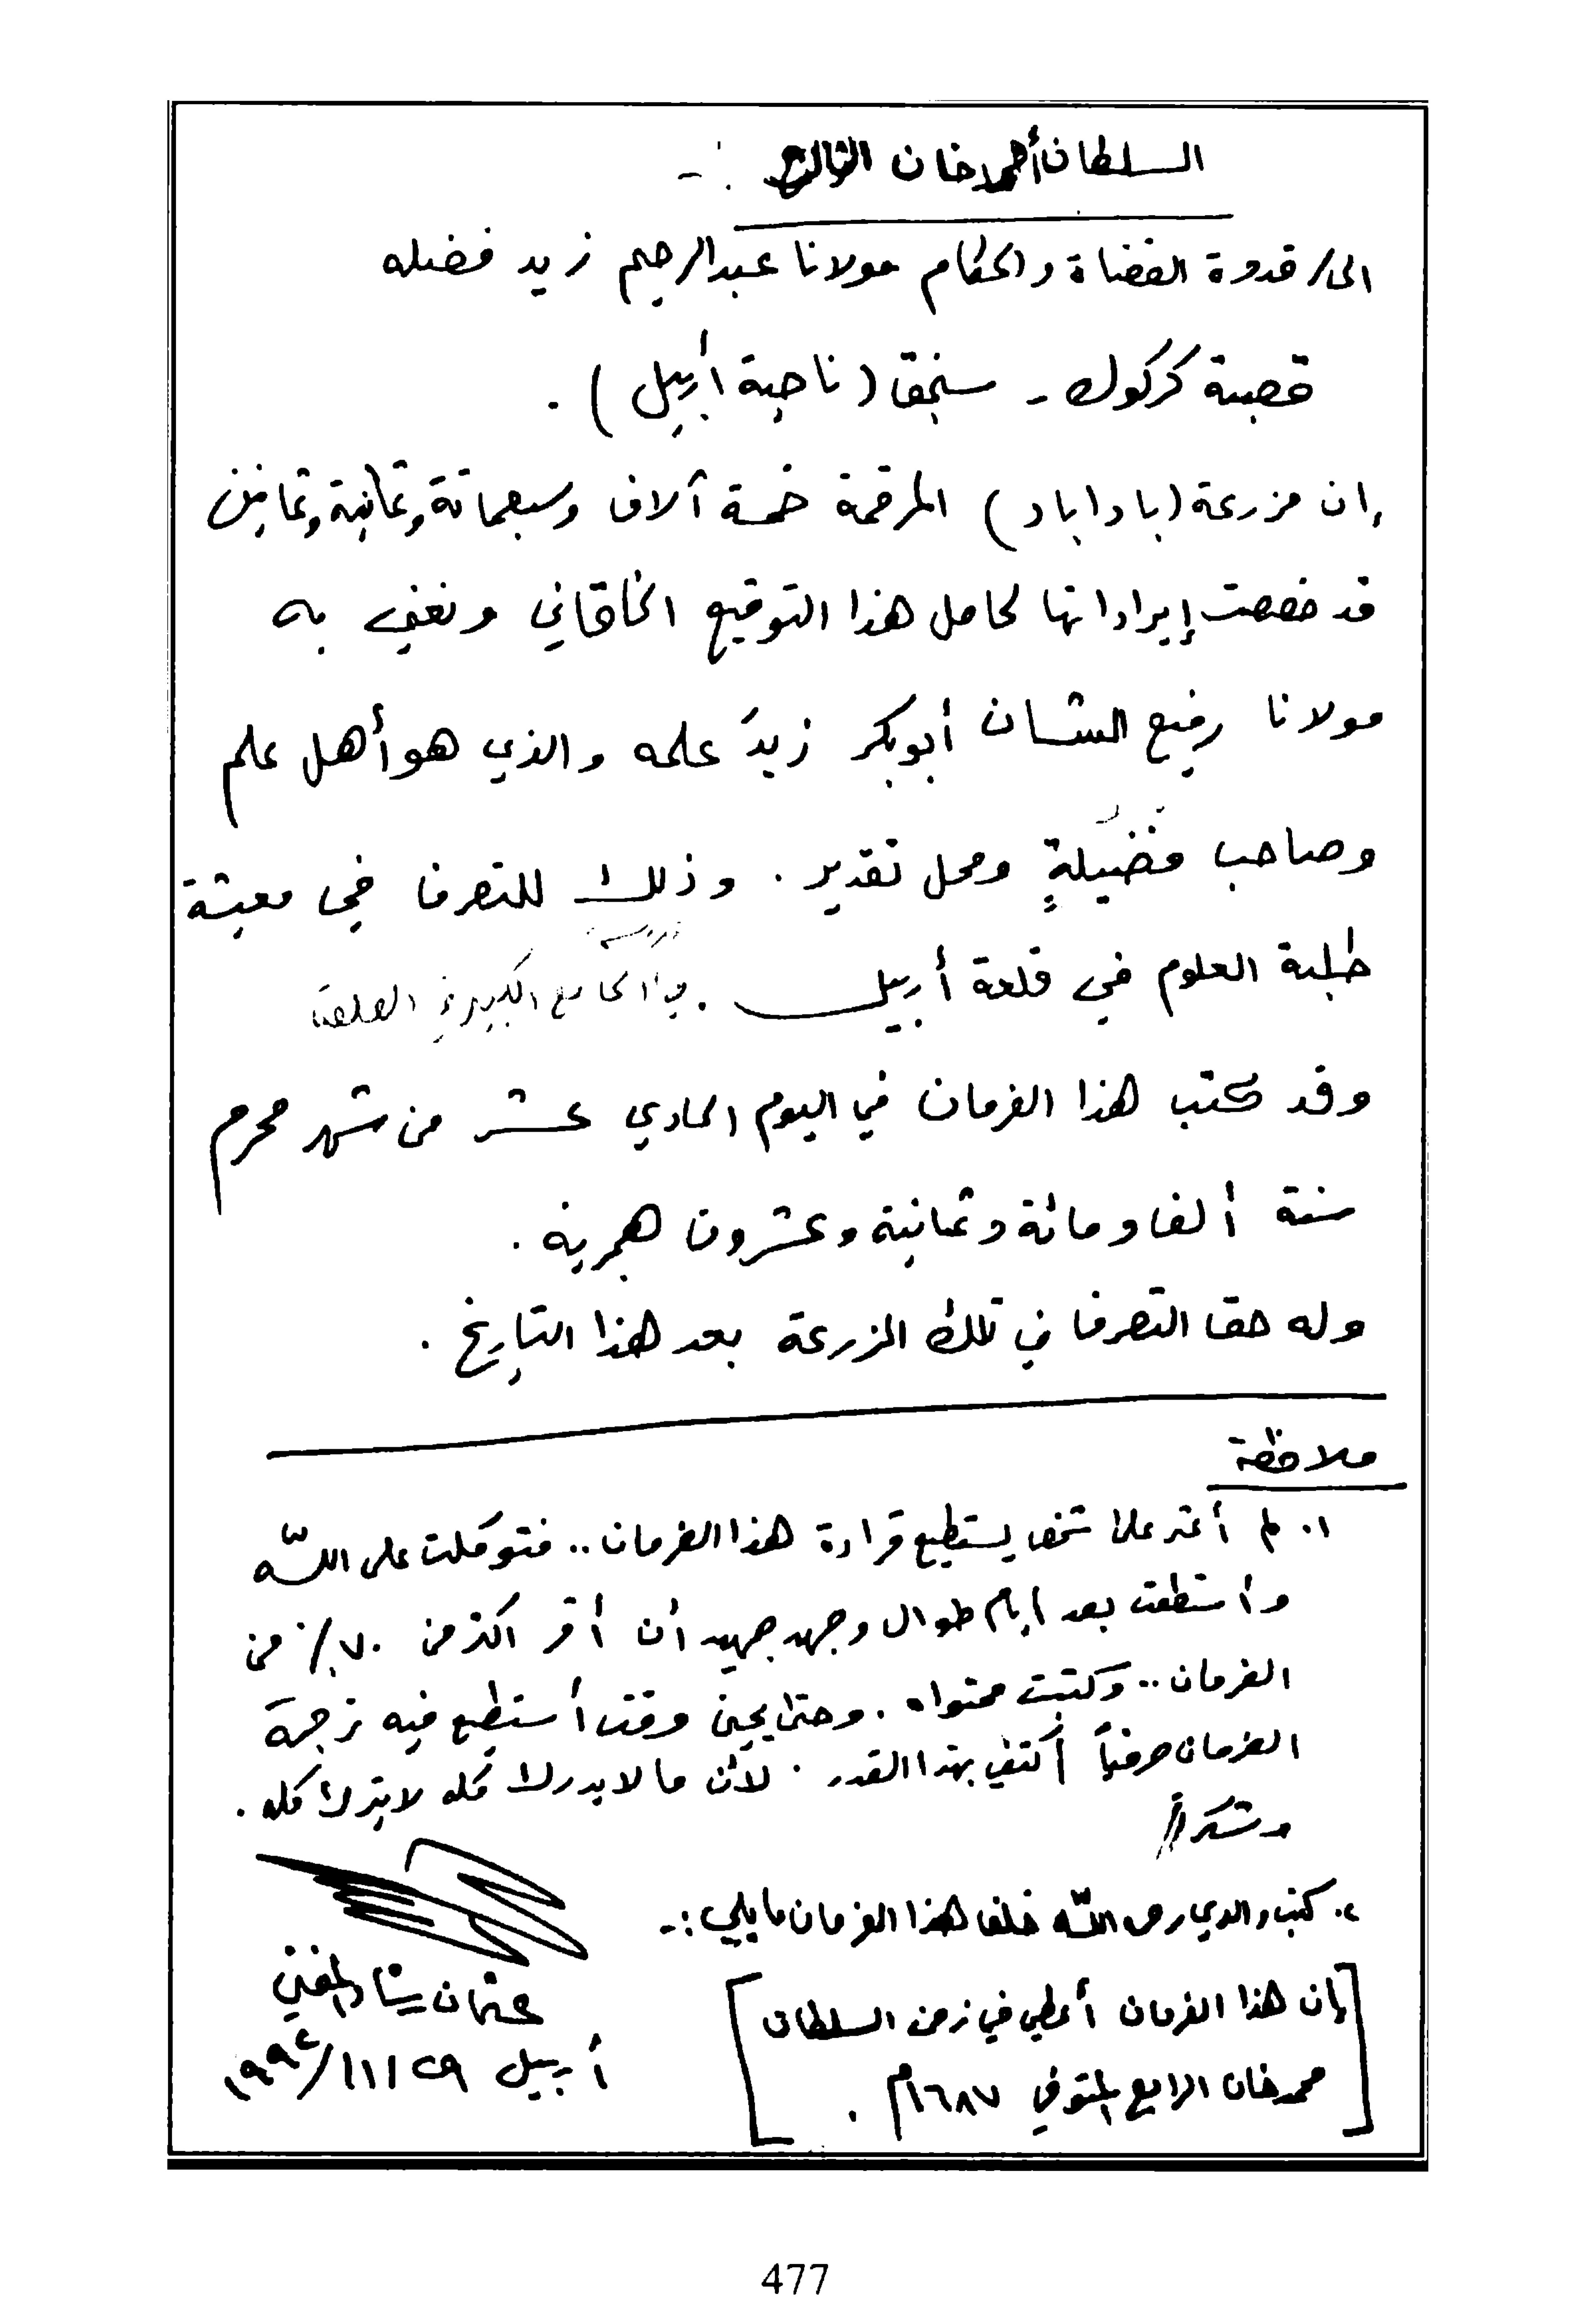 السلطان أحمد خان الثالث :-
الى/ قدوة القضاة والحكام مولانا عبدالرحيم زيد فضله
قصبة كركوك - سنجق (ناحية أربيل) .
إن مزرعة (باداباد) المرقمة خمسة آلاف وسبعمائة وثمانية وثمانين
قد خصصت إيراداتها لحامل هذا التوقيع الخاقاني ونعني به
مولانا رفيع الشان أبوبكر زيدَ علمه والذي هو أهل علم
وصاحب فضيلةٍ ومحل تقدير . وذلك للتصرف في معيشة
طلبة العلوم في قلعة أربيل . في الجامع الكبير في القلعة
وقد كتب هذا الفرمان في اليوم الحادي عشر من شهر محرم
سنة ألف ومائة وثمانية وعشرون هجرية .
وله حق التصرف في تلك المزرعة بعد هذا التاريخ .
ملاحظة
١. لم أعثر على شخص يستطيع قراءة هذا الفرمان .. فتوكلت على اللّه
واستطعت بعد ايام طوال وجهد جهيد أن أقر اكثر من ٧٠٪ من
الفرمان .. وكتبت محتواه . وحتى يحين وقت أستطيع فيه ترجمة
الفرمان حرفياً أكتفي بهذا القدر . لأن ما لا يدرك كله لا يترك كله .
وشكراً //
٢. كتب والدي رحم اللّه خلف هذا الفرمان ما يلي :-
[إن هذا الفرمان أعطي في زمن السلطان
محمد خان الرابع المتوفي ١٦٨٧م .]
عثمان رشاد المفتي
أربيل ٢٩/١١/١٩٩٢
477